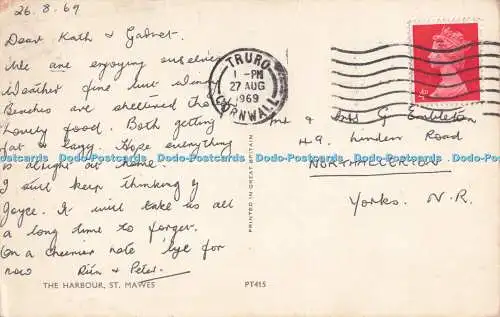 26.8.69
Dear Kath & Gadnet.
We are enjoying ourselves
Weather fine but windy
Beaches are sheltered tho
lovely food. Both getting
fat & lazy. Hope everything
is alright at home.
I still keep thinking of
Joyce. It will take us all
a long time to forget.
On a cheerier note 'bye for
now Rita & Peter.
THE HARBOUR, ST. MAWES
PT415
PRINTED IN GREAT BRITAIN
TRURO
1 - PM
27 AUG
1969
CORNWALL
Mr & Mrs G
49. Linden Road
NORTHALLERTON
Yorks. N.R.
Dodo-Postcards Dodo-Postcards Dodo-Postcards Dodo-Postcards Dodo-Postcards